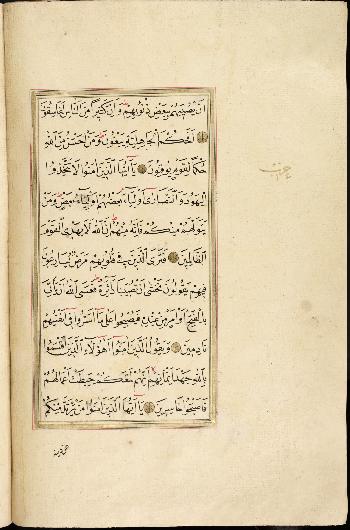 ان يصيبهم ببعض ذنوبهم وان كثيرا من الناس لفاسقون
افحكم الجاهلية يبغون ومن احسن من الله
حكما لقوم يوقنون يا ايها الذين امنوا لا تتخذوا
اليهود والنصارى اولياء بعضهم اولياء بعض ومن
يتولهم منكم فانه منهم ان الله لا يهدى القوم
الظالمين فترى الذين فى قلوبهم مرض يسارعون
فيهم يقولون نخشى ان تصيبنا دائرة فعسى الله ان يأتى
بالفتح او امر من عنده فيصبحوا على ما اسروا فى انفسهم
نادمين ويقول الذين امنوا اهؤلاء الذين اقسموا
بالله جهد ايمانهم انهم لمعكم حبطت اعمالهم
فاصبحوا خاسرين يا ايها الذين امنوا من يرتد منكم